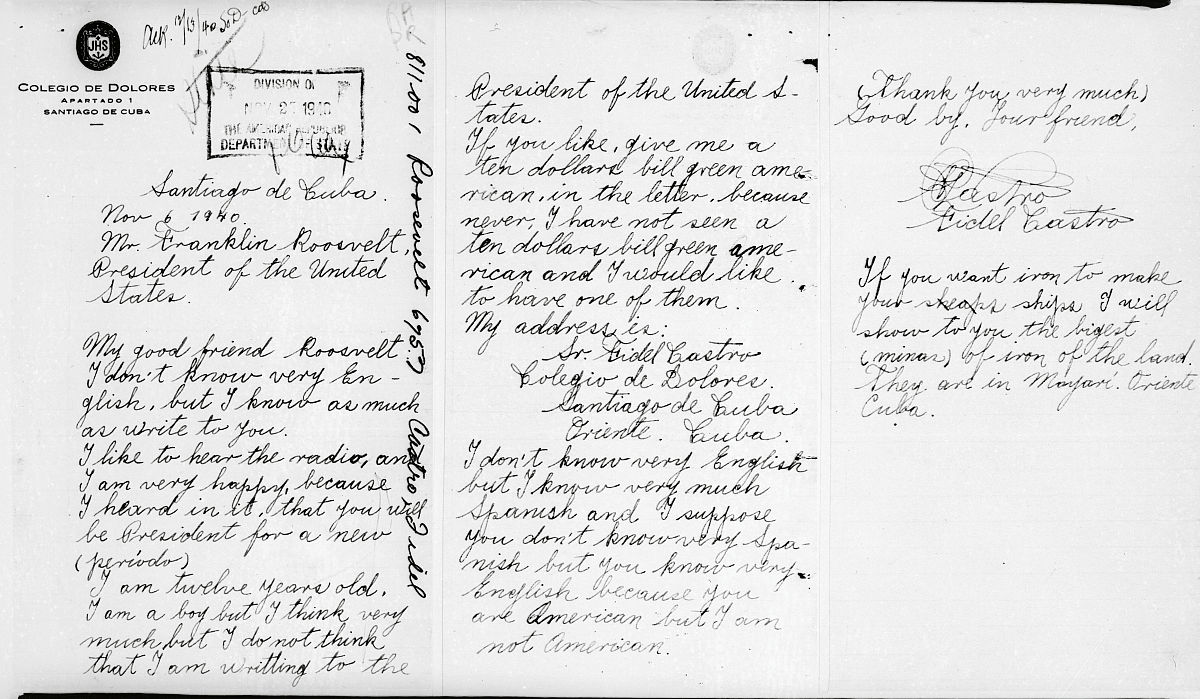 JHS
COLEGIO DE DOLORES
APARTADO 1
SANTIAGO DE CUBA
DIVISION OF
NOV 27 1940
THE AMERICAN REPUBLICS
DEPARTMENT OF STATE
811.001 Roosevelt 695.7 Castro, Fidel
Santiago de Cuba.
Nov 6 1940.
Mr. Franklin Roosvelt,
President of the United
States.
My good friend Roosvelt
I don't know very En-
glish, but I know as much
as write to you.
I like to hear the radio, and
I am very happy, because
I heard in it, that you will
be President for a new
(período)
I am twelve years old.
I am a boy but I think very
much but I do not think
that I am writting to the
President of the United S-
tates.
If you like, give me a
ten dollars bill green ame-
rican, in the letter, because
never, I have not seen a
ten dollars bill green ame-
rican and I would like
to have one of them.
My address is:
Sr. Fidel Castro
Colegio de Dolores.
Santiago de Cuba
Oriente. Cuba.
I don't know very English
but I know very much
Spanish and I suppose
you don't know very Spa-
nish but you know very
English because you
are American but I am
not American.
(Thank you very much)
Good by. Your friend,
Castro
Fidel Castro
If you want iron to make
your sheaps ships I will
show to you the bigest
(minas) of iron of the land.
They are in Mayarí. Oriente
Cuba.